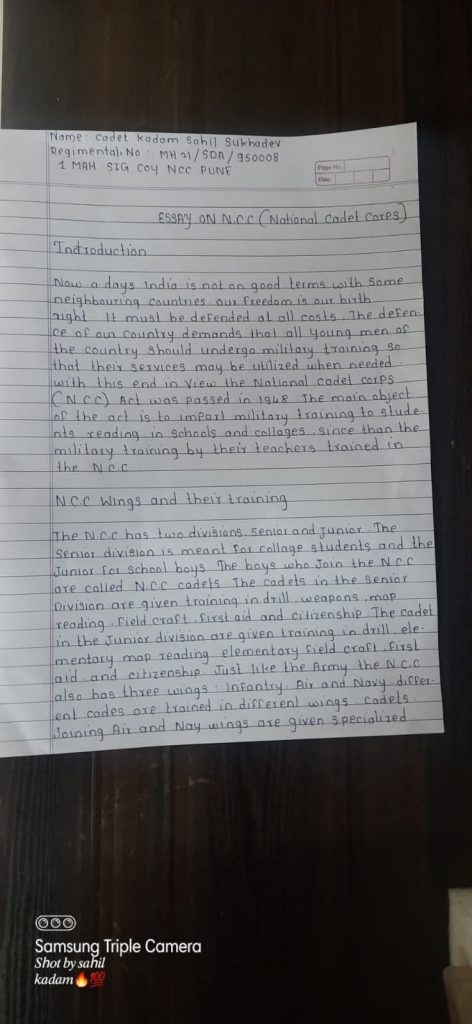 Name : Cadet Kadam Sahil Sukhadev
Regimental No : MH 21/SDA/950008
1 MAH SIG COY NCC PUNE
Page No.
Date
ESSAY ON N.C.C (National Cadet Corps)
Introduction
Now a days India is not on good terms with Some
neighbouring countries. our freedom is our birth
right It must be defended at all costs. The defen-
ce of our country demands that all young men of
the country should undergo military training so
that their services may be utilized when needed.
with this end in view the National cadet corps
(NCC) Act was passed in 1948. The main object
of the act is to impart military training to stude-
nts reading in schools and collages. since than the
military training by their teachers trained in
the N.C.C
N.C.C Wings and their training
The N.C.C has two divisions. Senior and junior. The
Senior division is meant for collage students and the
Junior for school boys. The boys who Join the N.C.C
are called N.C.C cadets. The cadets in the Senior
Division are given training in drill. weapons. map
reading. field craft. first aid and citizenship. The cadet
in the Junior division are given training in drill. ele-
mentary map reading elementary field craft. first
aid. and citizenship. Just like the Army the N.C.C
also has three wings : Infantry. Air and Navy. differ-
ent cades are trained in different wings. cadels.
Joining Air and Nay wings are given specialized
Samsung Triple Camera
Shot by sahil
kadam🔥💯